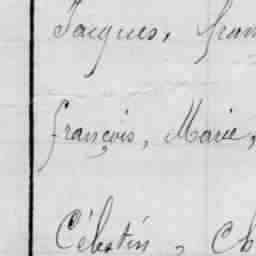 Jacques,
françois, Marie,
Célestin, Ch